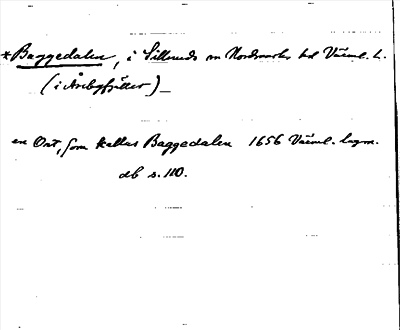 *Baggedalen, i Silleruds sn Nordmarks hd Värml. l.
(i Årebyfjället)
en Ort, som kallas Baggedalen 1656 Värml. lagm.
db s. 110.